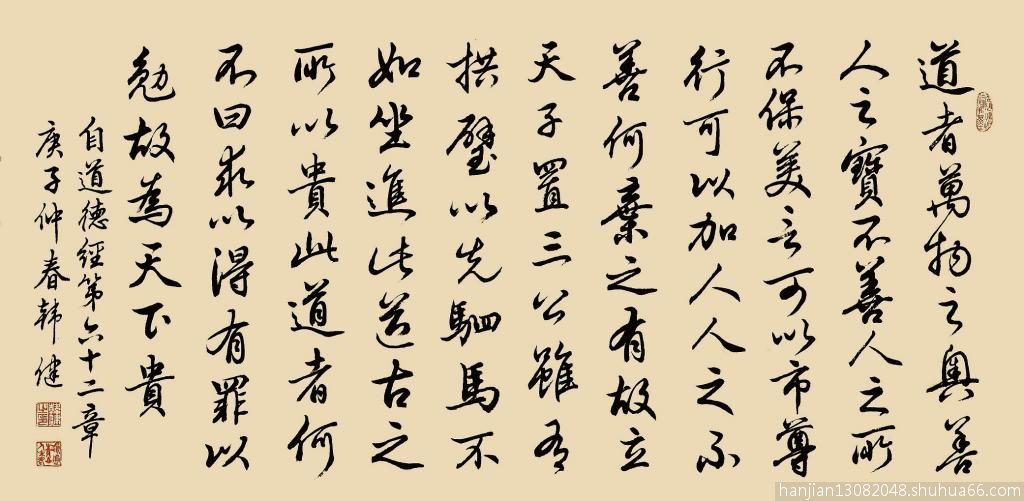 道者萬物之奧善
人之寶不善人之所
不保美言可以市尊
行可以加人人之不
善何棄之有故立
天子置三公雖有
拱璧以先駟馬不
如坐進此道古之
所以貴此道者何
不曰求以得有罪以
勉故為天下貴
自道德經第六十二章
庚子仲春韩健
hanjian13082048.shuhua66.com